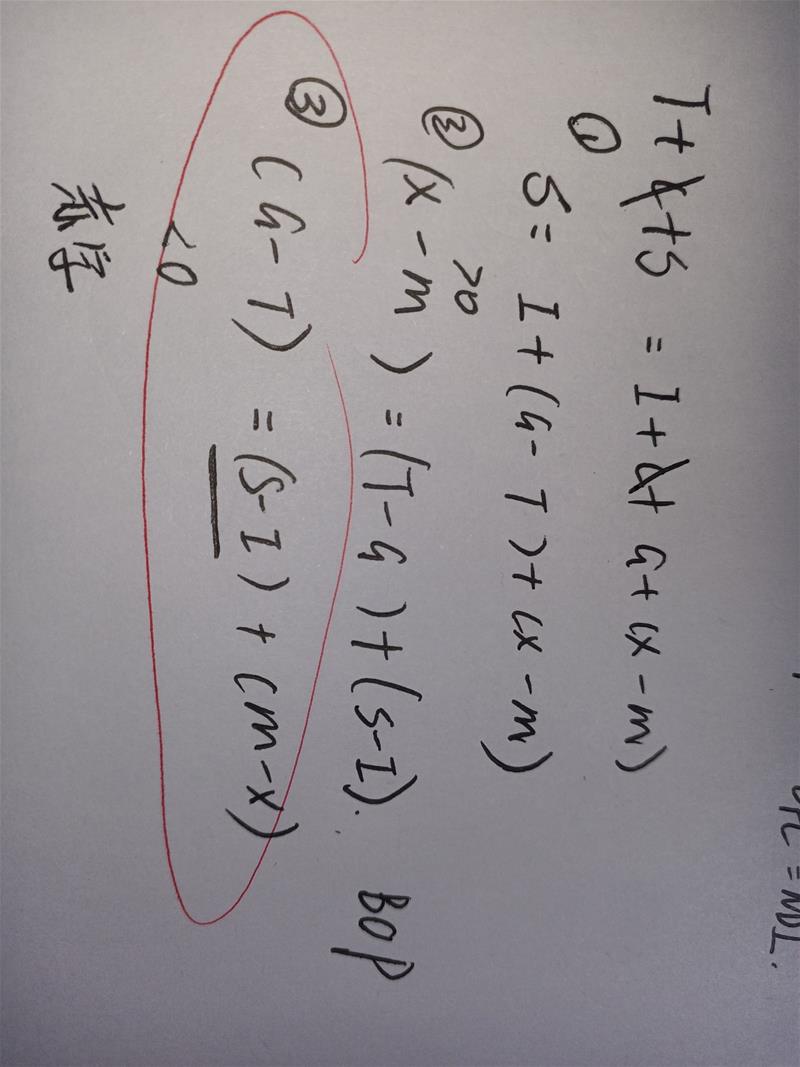 = NDI.
T + C + S = I + C + G + (X - M)
① S = I + (G - T) + (X - M)
>0
② (X - M) = (T - G) + (S - I). BOP
③ (G - T) = (S - I) + (M - X)
<0
赤字